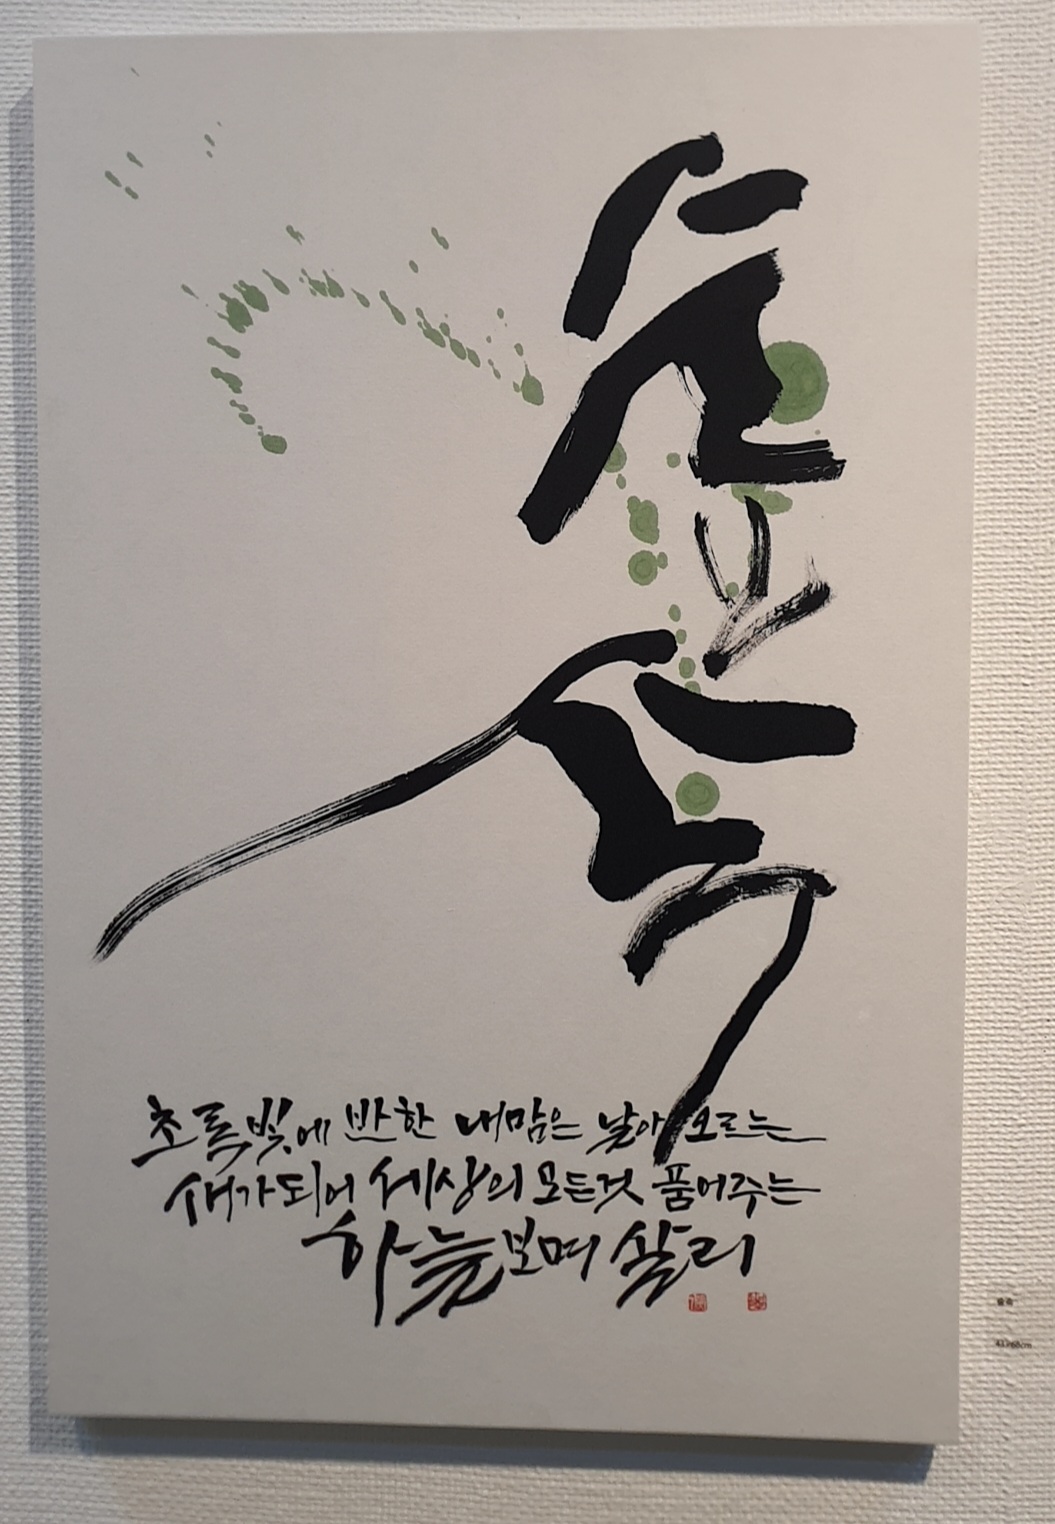 숲속
초록빛에 반한 내맘은 날아 오르는
새가되어 세상의 모든것 품어주는
하늘보며 살리